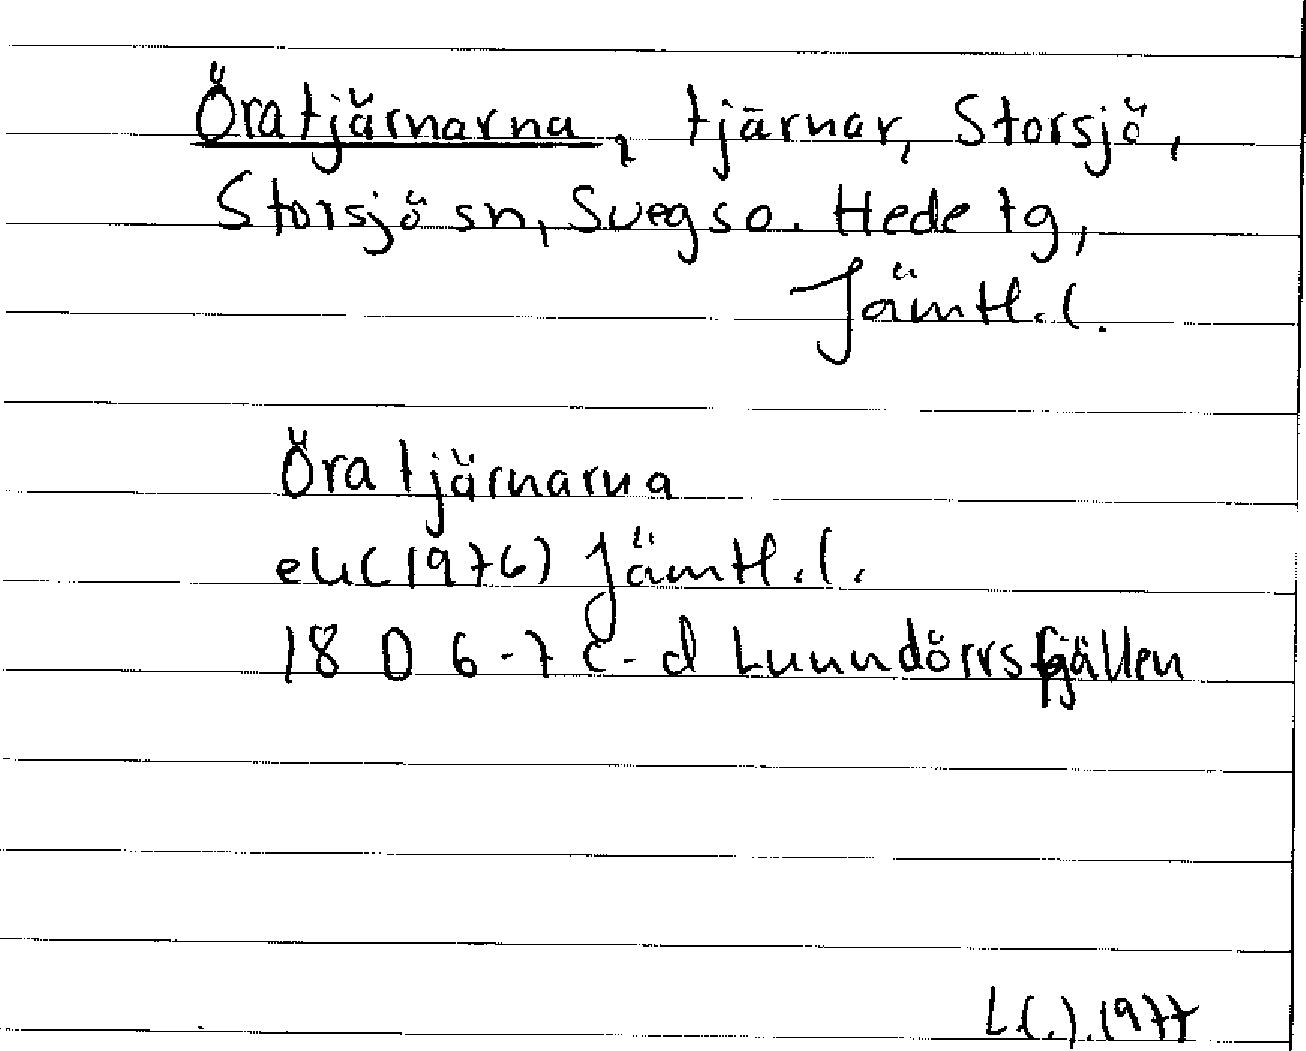 Öratjärnarna, tjärnar, Storsjö,
Storsjö sn, Svegs o. Hede tg,
Jämtl. l.
Öratjärnarna
ek (1976) Jämtl. l.
18 D 6-7 c-d Lunndörrsfjällen
1977